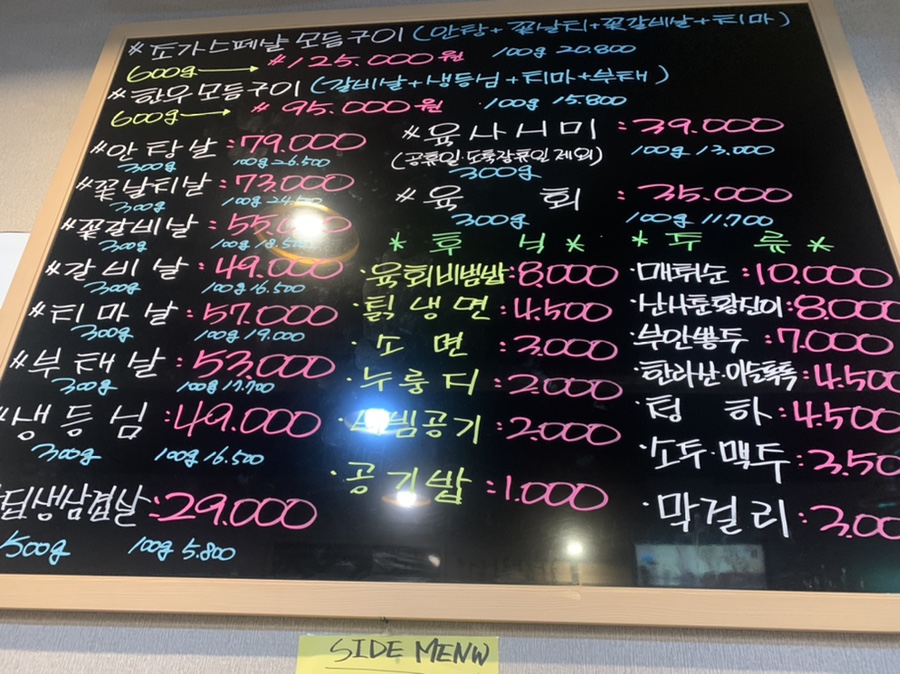 * 조가스페샬 모듬구이 (안창+꽃날치+꽃갈비날+치마)
600g → ₩125.000원 100g 20.800
* 한우모듬구이 (갈비날+생등심+치마+부채)
600g → ₩95.000원 100g 15.800
*안창날:79.000
300g 100g 26.500
*꽃날치날:73.000
300g
*꽃갈비날:
300g
*갈비날:49.000
300g 100g 16.500
*치마날:57.000
300g 100g 19.000
*부채날:53.000
300g 100g 17.700
*생등심:49.000
300g 100g 16.500
생삼겹살:29.000
500g 100g 5.800
*육사시미:39.000
(공휴일·도축장휴일 제외) 100g 13.000
300g
*육회:35.000
300g 100g 11.700
* 후식 *
·육회비빔밥:8.000
·칡냉면:4.500
·소면:3.000
·누룽지:2.000
공기:2.000
·공기밥:1.000
* 주류 *
·매취순:10.000
:8.000
·부안뽕주:7.000
·한라산·이슬톡톡:4.500
·청하:4.500
·소주·맥주:3.50
·막걸리:3.00
SIDE MENW